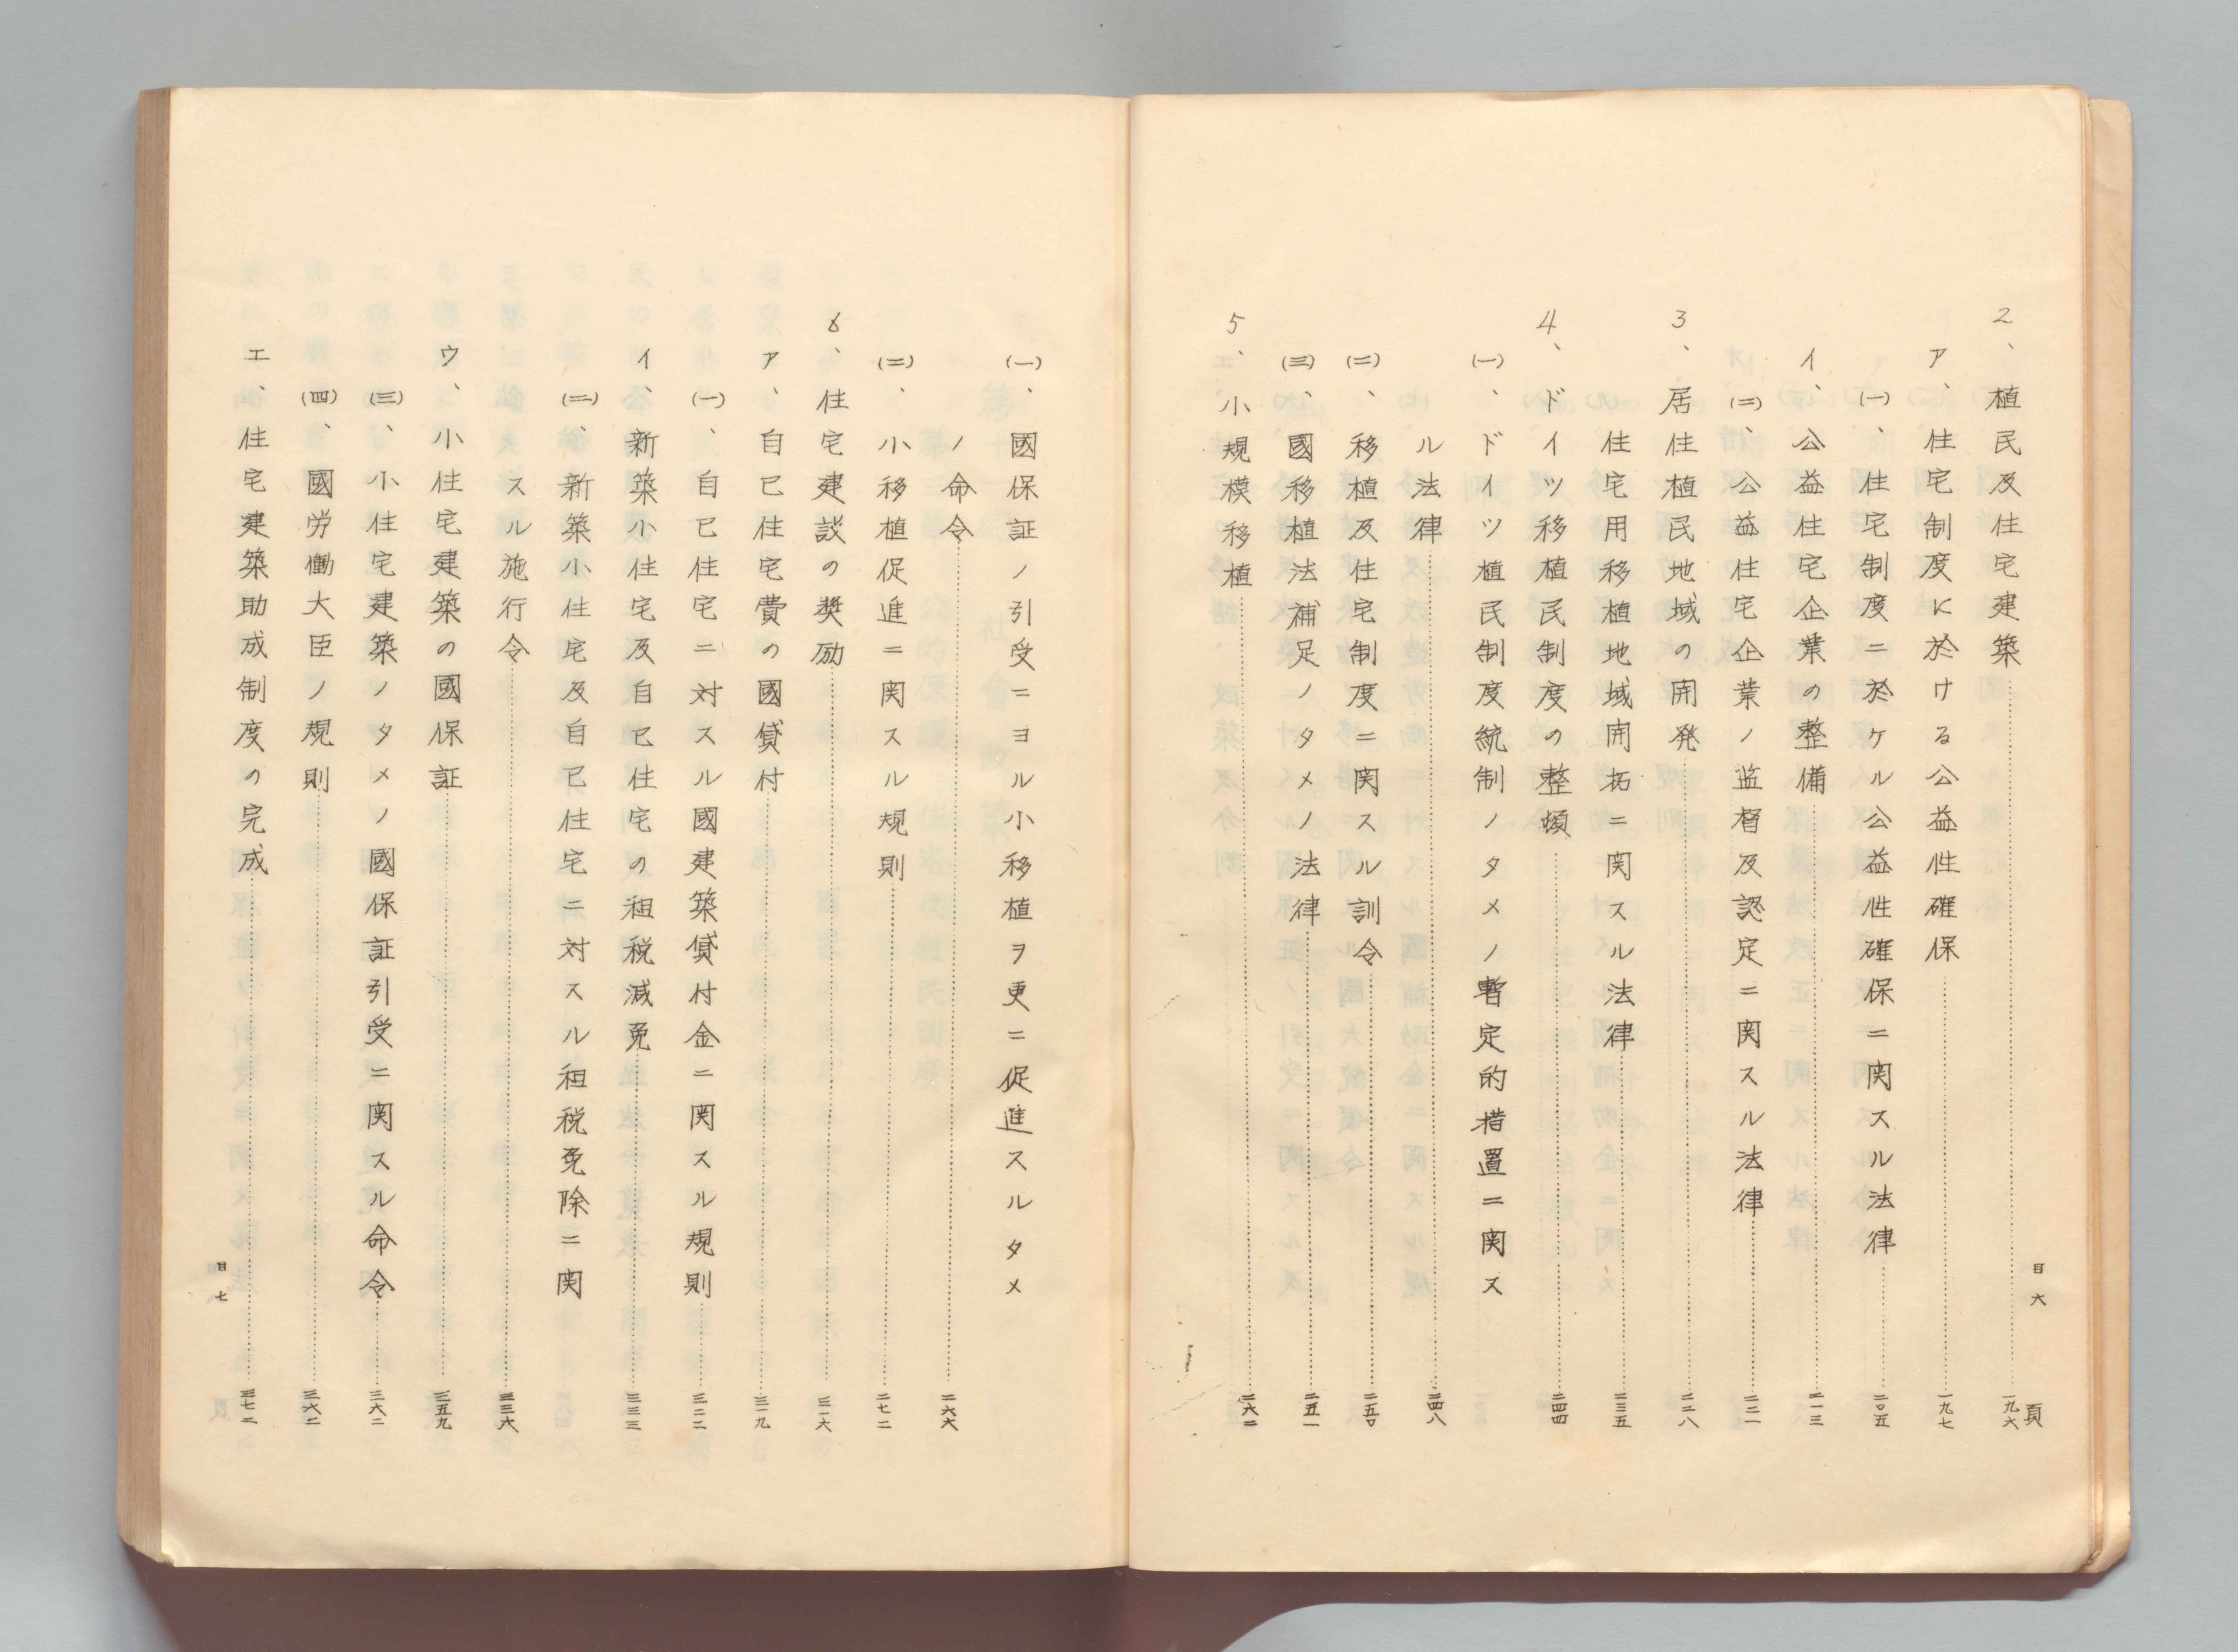 目六
頁
2、植民及住宅建築……一九六
ア、住宅制度に於ける公益性確保……一九七
(一)、住宅制度ニ於ケル公益性確保ニ関スル法律……二〇五
イ、公益住宅企業の整備……二一三
(二)、公益住宅企業ノ監督及認定ニ関スル法律……二二一
3、居住植民地域の開発……二二八
住宅用移植地域開拓ニ関スル法律……二三五
4、ドイツ移植民制度の整頓……二四四
(一)、ドイツ植民制度統制ノタメノ暫定的措置ニ関ス
ル法律……二四八
(二)、移植及住宅制度ニ関スル訓令……二五〇
(三)、國移植法補足ノタメノ法律……二五一
5、小規模移植……二六二
(一)、國保証ノ引受ニヨル小移植ヲ更ニ促進スルタメ
ノ命令……二六六
(二)、小移植促進ニ関スル規則……二七二
6、住宅建談の奨励……三一六
ア、自己住宅費の國貸付……三一九
(一)、自己住宅ニ対スル國建築貸付金ニ関スル規則……三二二
イ、新築小住宅及自己住宅の租税減免……三三三
(二)、新築小住宅及自己住宅ニ対スル租税免除ニ関
スル施行令……三三六
ウ、小住宅建築の國保証……三五九
(三)、小住宅建築ノタメノ國保証引受ニ関スル命令……三六二
(四)、國労働大臣ノ規則……三六二
エ、住宅建築助成制度の完成……三七二
目七